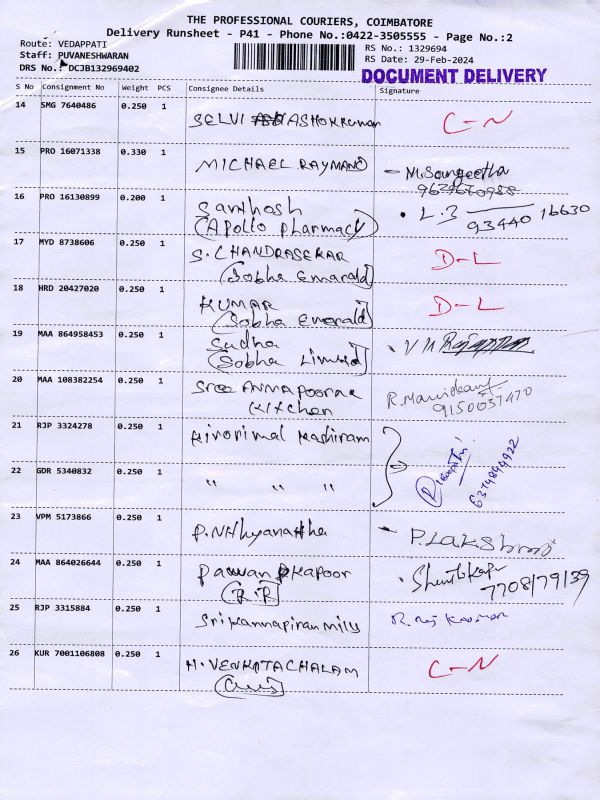 THE PROFESSIONAL COURIERS, COIMBATORE
Delivery Runsheet - P41 - Phone No.:0422-3505555 - Page No.:2
Route: VEDAPPATI
RS No.: 1329694
Staff: PUVANESHWARAN
RS Date: 29-Feb-2024
DRS No.: DCJB132969402
DOCUMENT DELIVERY
S No Consignment No Weight PCS Consignee Details Signature
14 SMG 7640486 0.250 1 SELVI ASHOKKUMAR C-N
15 PRO 16071338 0.330 1 MICHAEL RAYMAND M.Sangeetha
16 PRO 16130899 0.200 1 Santhosh L.3 93440 16630
(Apollo pharmacy)
17 MYD 8738606 0.250 1 S.CHANDRASEKAR D-L
(Sobha Emerald)
18 HRD 20427020 0.250 1 KUMAR D-L
(Sobha Emerald)
19 MAA 864958453 0.250 1 Sudha
(Sobha Limited)
20 MAA 108382254 0.250 1 Sree Annapoorna
Kitchen 9150037470
21 RJP 3324278 0.250 1 Kirorimal Kashiram
22 GDR 5340832 0.250 1 " " " 6374894922
23 VPM 5173866 0.250 1 P.Nithyanantha P.Lakshmi
24 MAA 864026644 0.250 1 Pawan Kapoor
(R.P) 7708179139
25 RJP 3315884 0.250 1 Sri Kannapiran Mills R. Raj Kumar
26 KUR 7001106808 0.250 1 N.VENKATACHALAM C-N